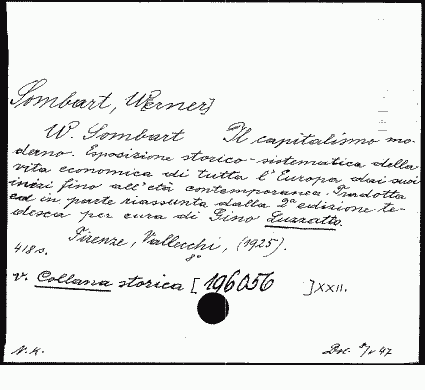 Sombart, Werner]
W. Sombart Il capitalismo mo-
derno. Esposizione storico-sistematica della
vita economica di tutta l'Europa dai suoi
inizi fino all'età contemporanea. Tradotta
ed in parte riassunta dalla 2ª edizione te-
desca per cura di Gino Luzzatto.
Firenze, Vallecchi, (1925).
418 s. 8°
v. Collana storica [196056 ]XXII.
N. K. Dec. 47